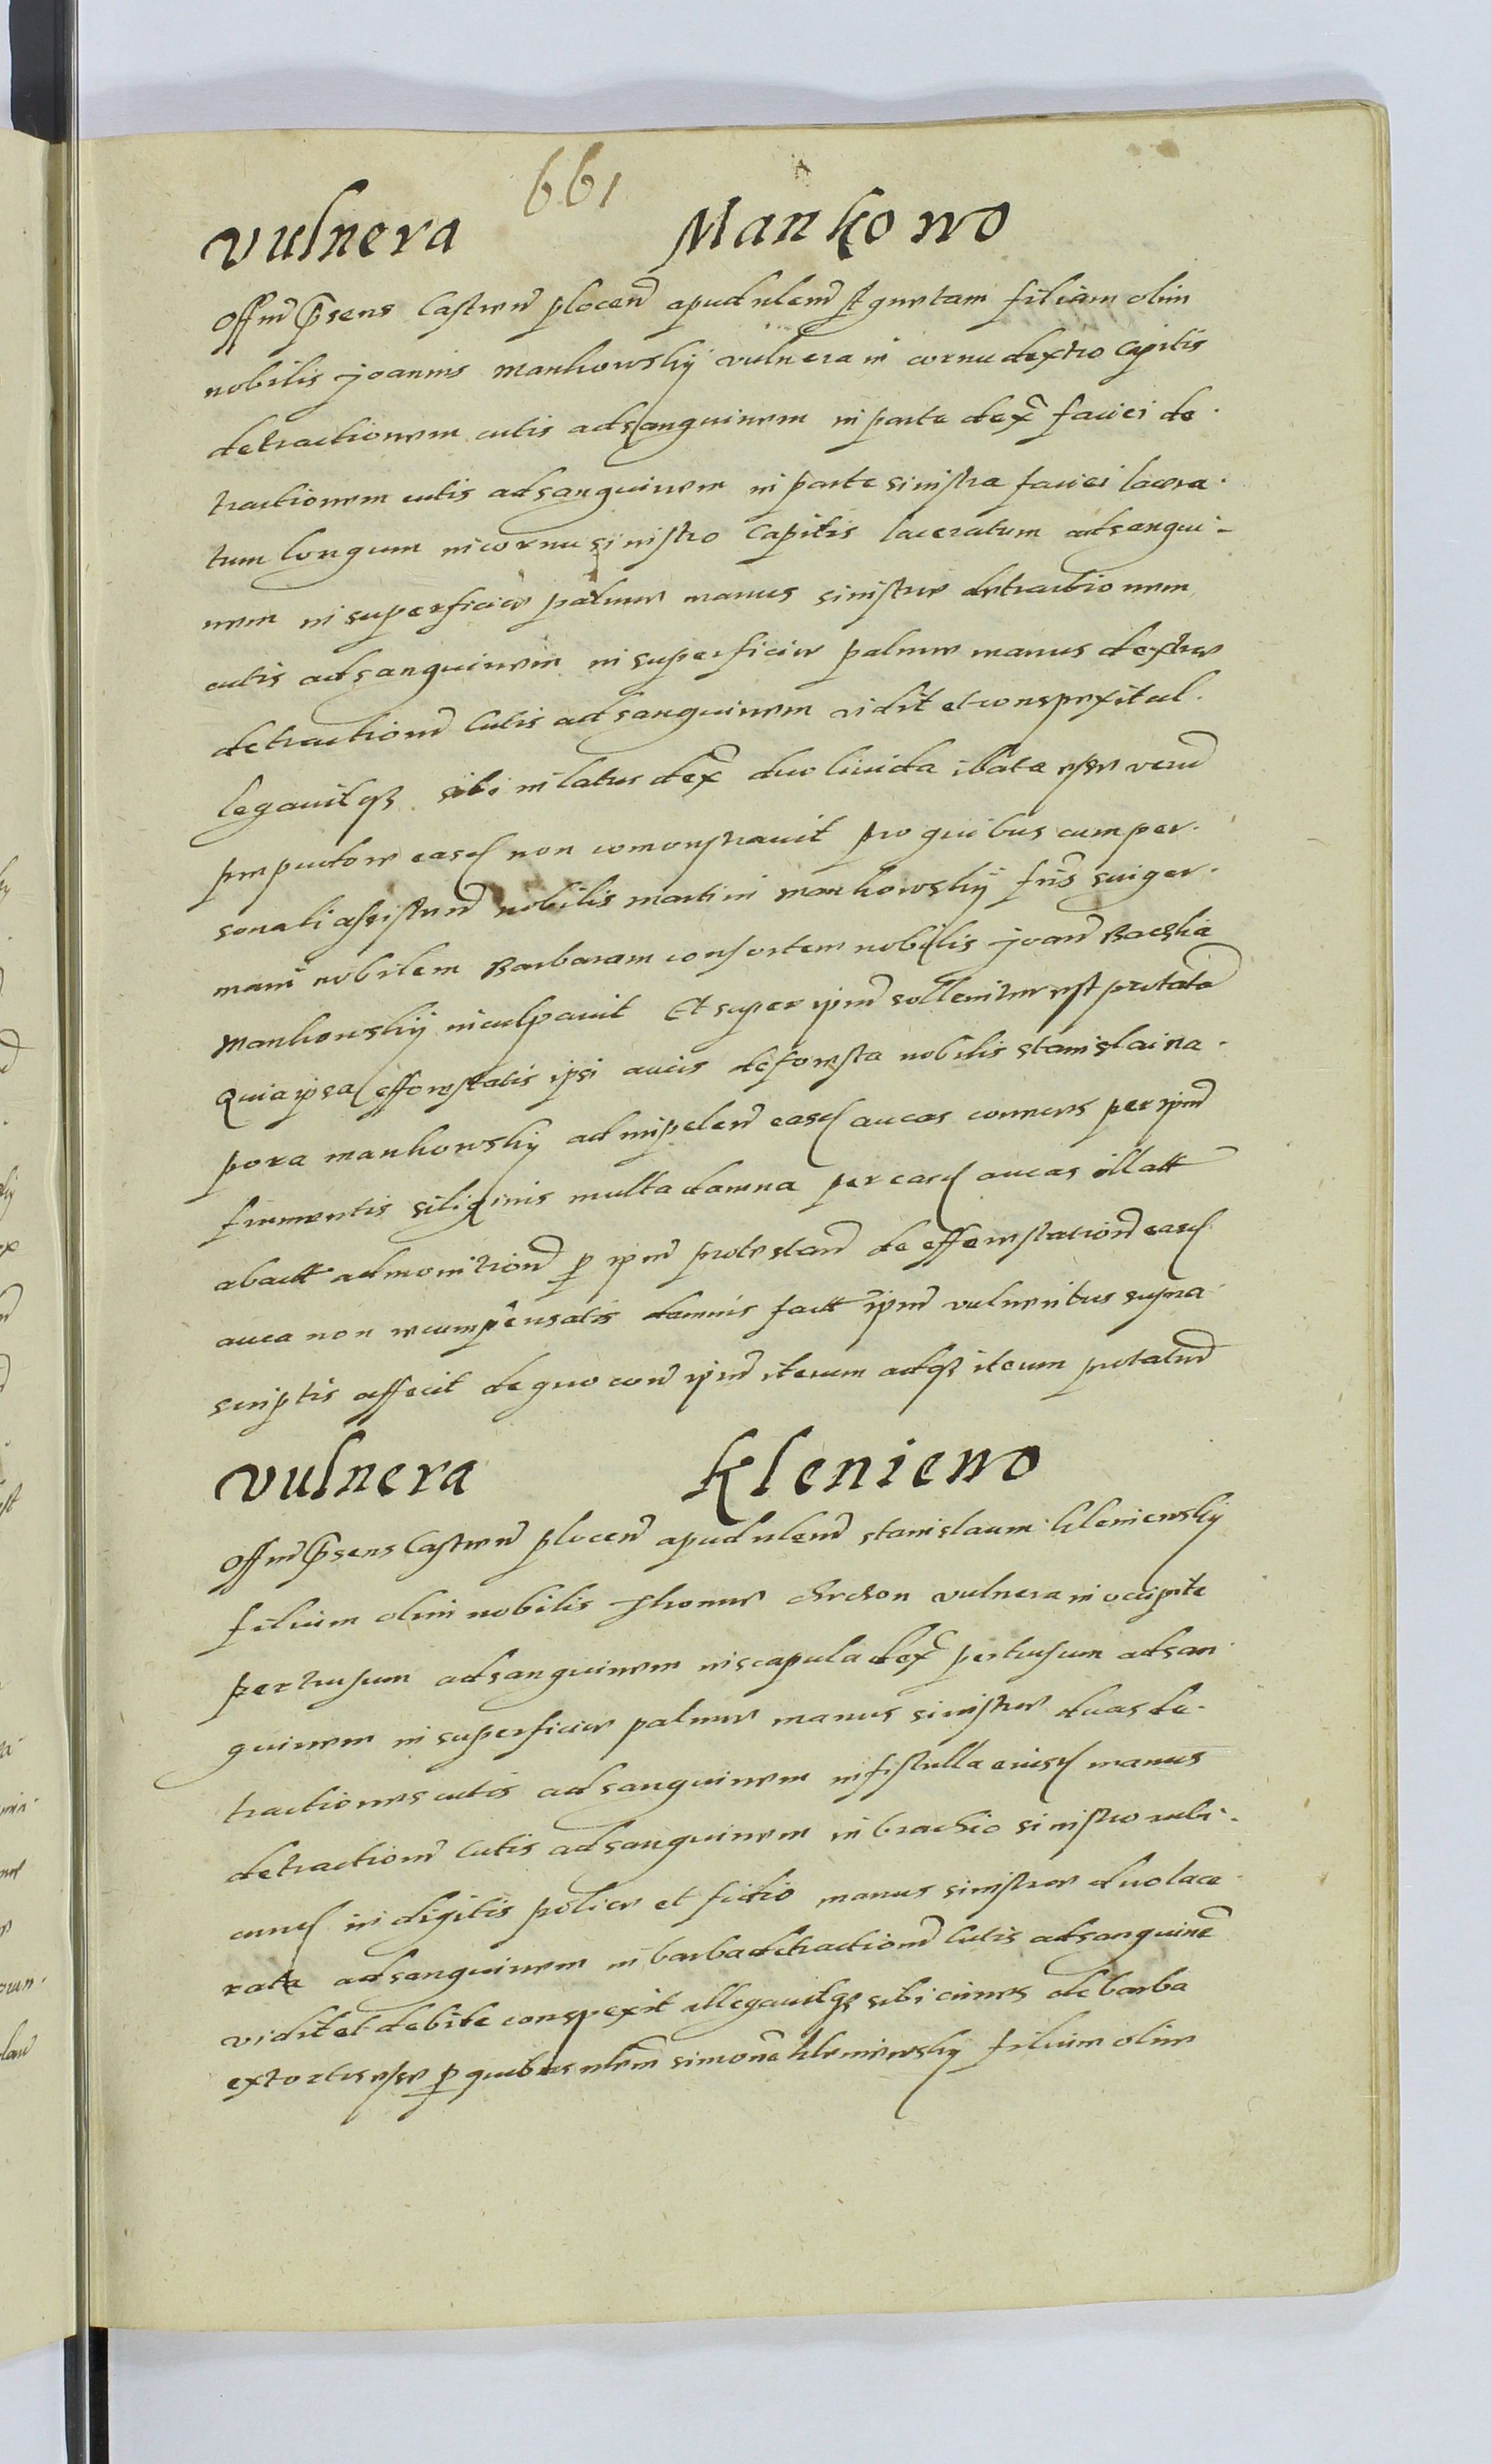 661
Vulnera Mankowo
Offm Psens Castren plocen apud nlem Agnetam filiam olim
nobilis Joannis Mankowskÿ vulnera in cornu dextro Capitis
detractionem cutis ad sanguinem in parte dex faciei de
tractionem cutis ad sanguinem in parte sinistra faciei lacera
tum longum in cornu sinistro Capitis laceratum ad sangui-
nem in superficie palme manus sinistre detractionem
cutis ad sanguinem in superficie palme manus dextre
detractionem Cutis ad sanguinem vidit et conspexit al
legavitqz sibi in latus dex duo livida illata esse verum
propudore easd non comonstravit pro quibus cum per
sonali assisten nobilis Martini Mankowskÿ fris sui ger
mani nobilem Barbaram consortem nobilis Joan Baczka
Mankowskÿ inculpavit Et super ipm sollenniter est protata
Quia ipsa ipsi aucis nobilis Stanislai na
pora Mankowsky ad easd aucas per ipm
frumentis siliginis multa damna per easd aucas illatt
admonition p ipm protestan de easd
auca non recumpensatis damnis factt ipm vulneribus supra
scriptis affecit de quo con ipm iterum adqz iterum protatur
Vulnera Kleniewo
Offm Psens Castren plocen apud nlem Stanislaum Kleniewsky
filium olim nobilis vulnera in occipite
pertusum ad sanguinem in scapula dex pertusum ad san
guinem in superficie palme manus sinistre duas de
tractiones cutis ad sanguinem in fistulla eiusd manus
detractionem Cutis ad sanguinem in brachio sinistro rubi
cund in digitis police et manus sinistre duo lace
rata ad sanguinem in barba detractionem Cutis ad sanguine
vidit et debite conspexit allegavitqz sibi crines de barba
extortes esse p quibus nlem Simone Kleniewsky filium olim